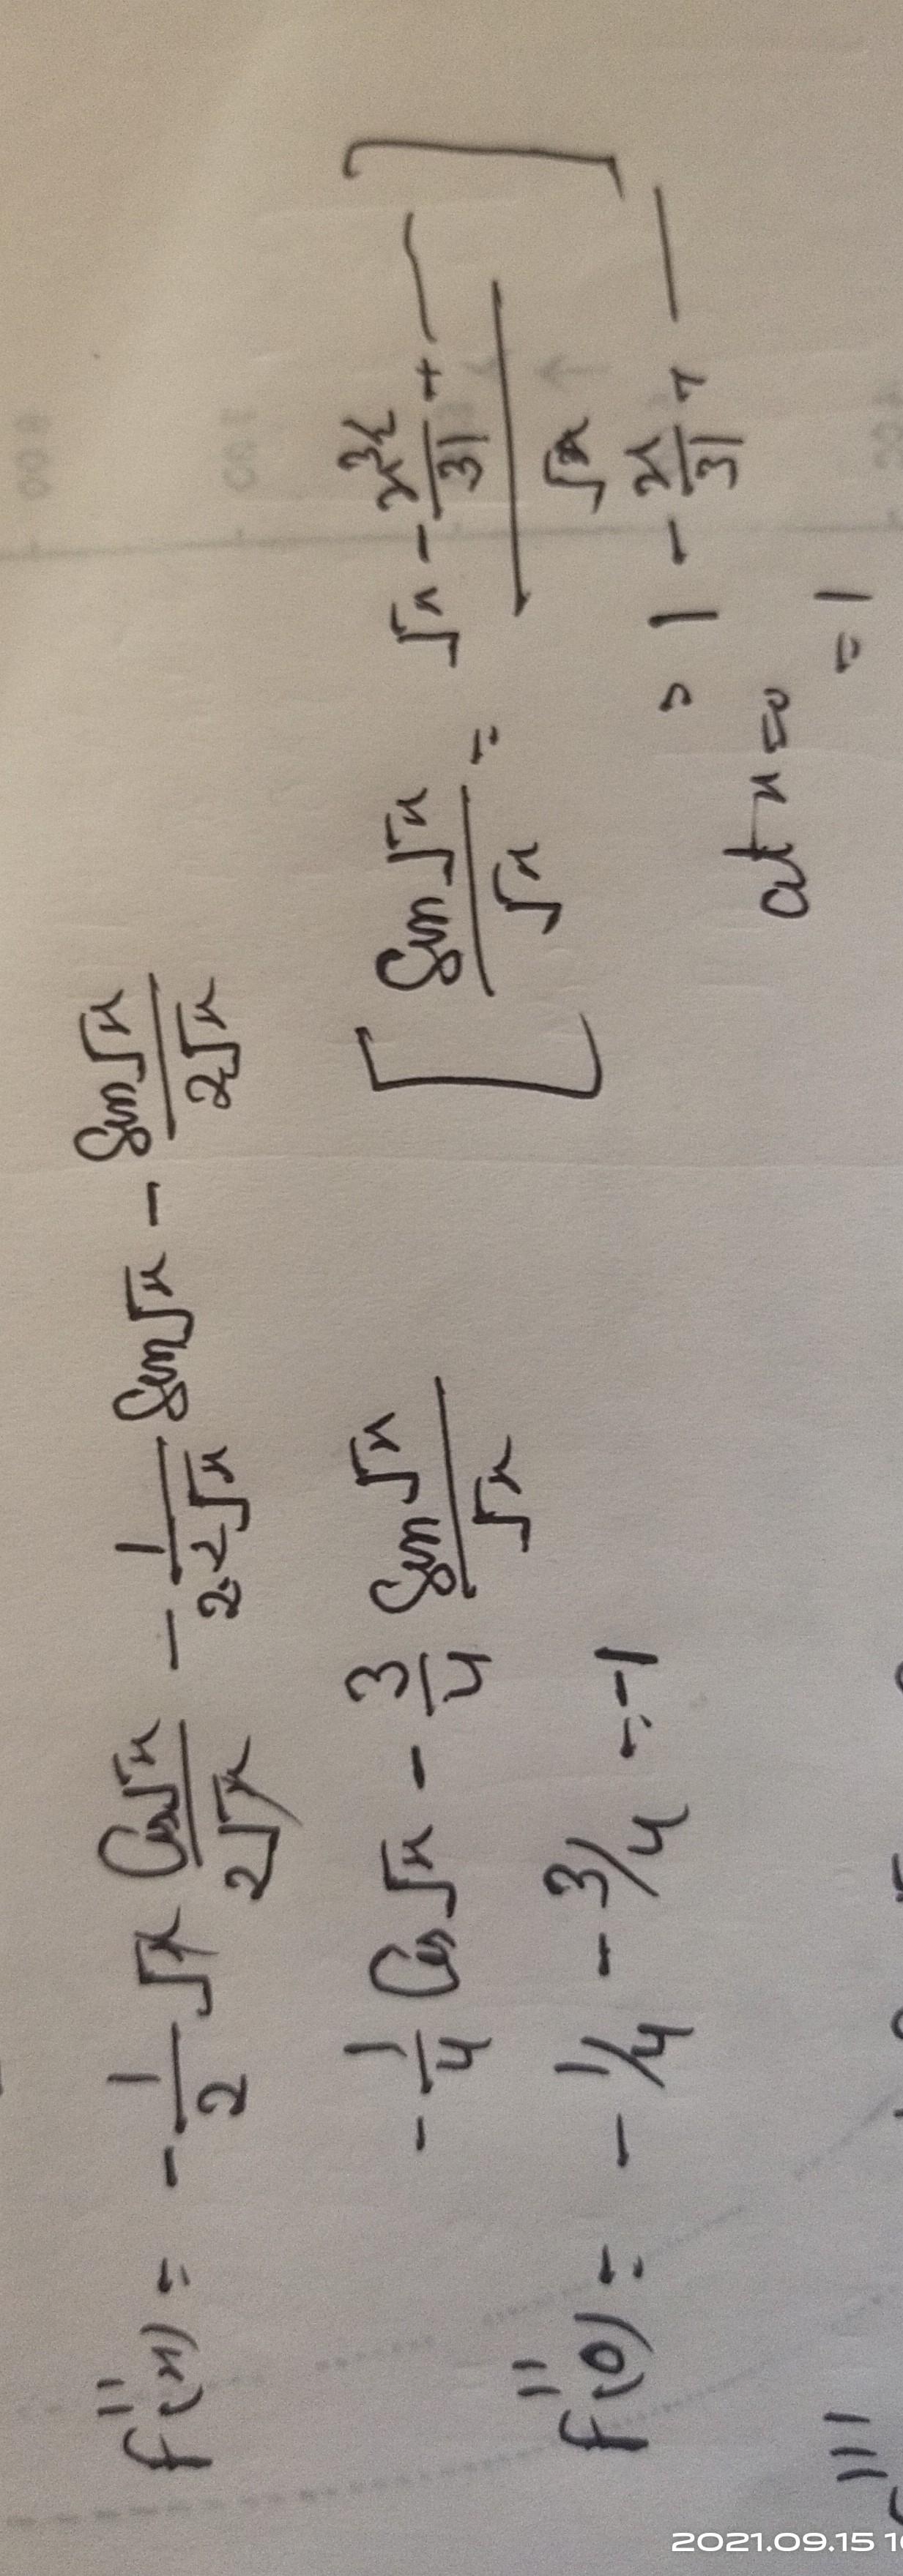 f''(x) = - 1/2 √x Cos√x/2√x - 1/2·2√x Sin√x - Sin√x/2√x
- 1/4 Cos√x - 3/4 Sin√x/√x [ Sin√x/√x = √x - x^3/2/3! + —/√x ]
= 1 - x/3! + —
f''(0) = - 1/4 - 3/4 = -1
at x=0
= 1
2021.09.15 1